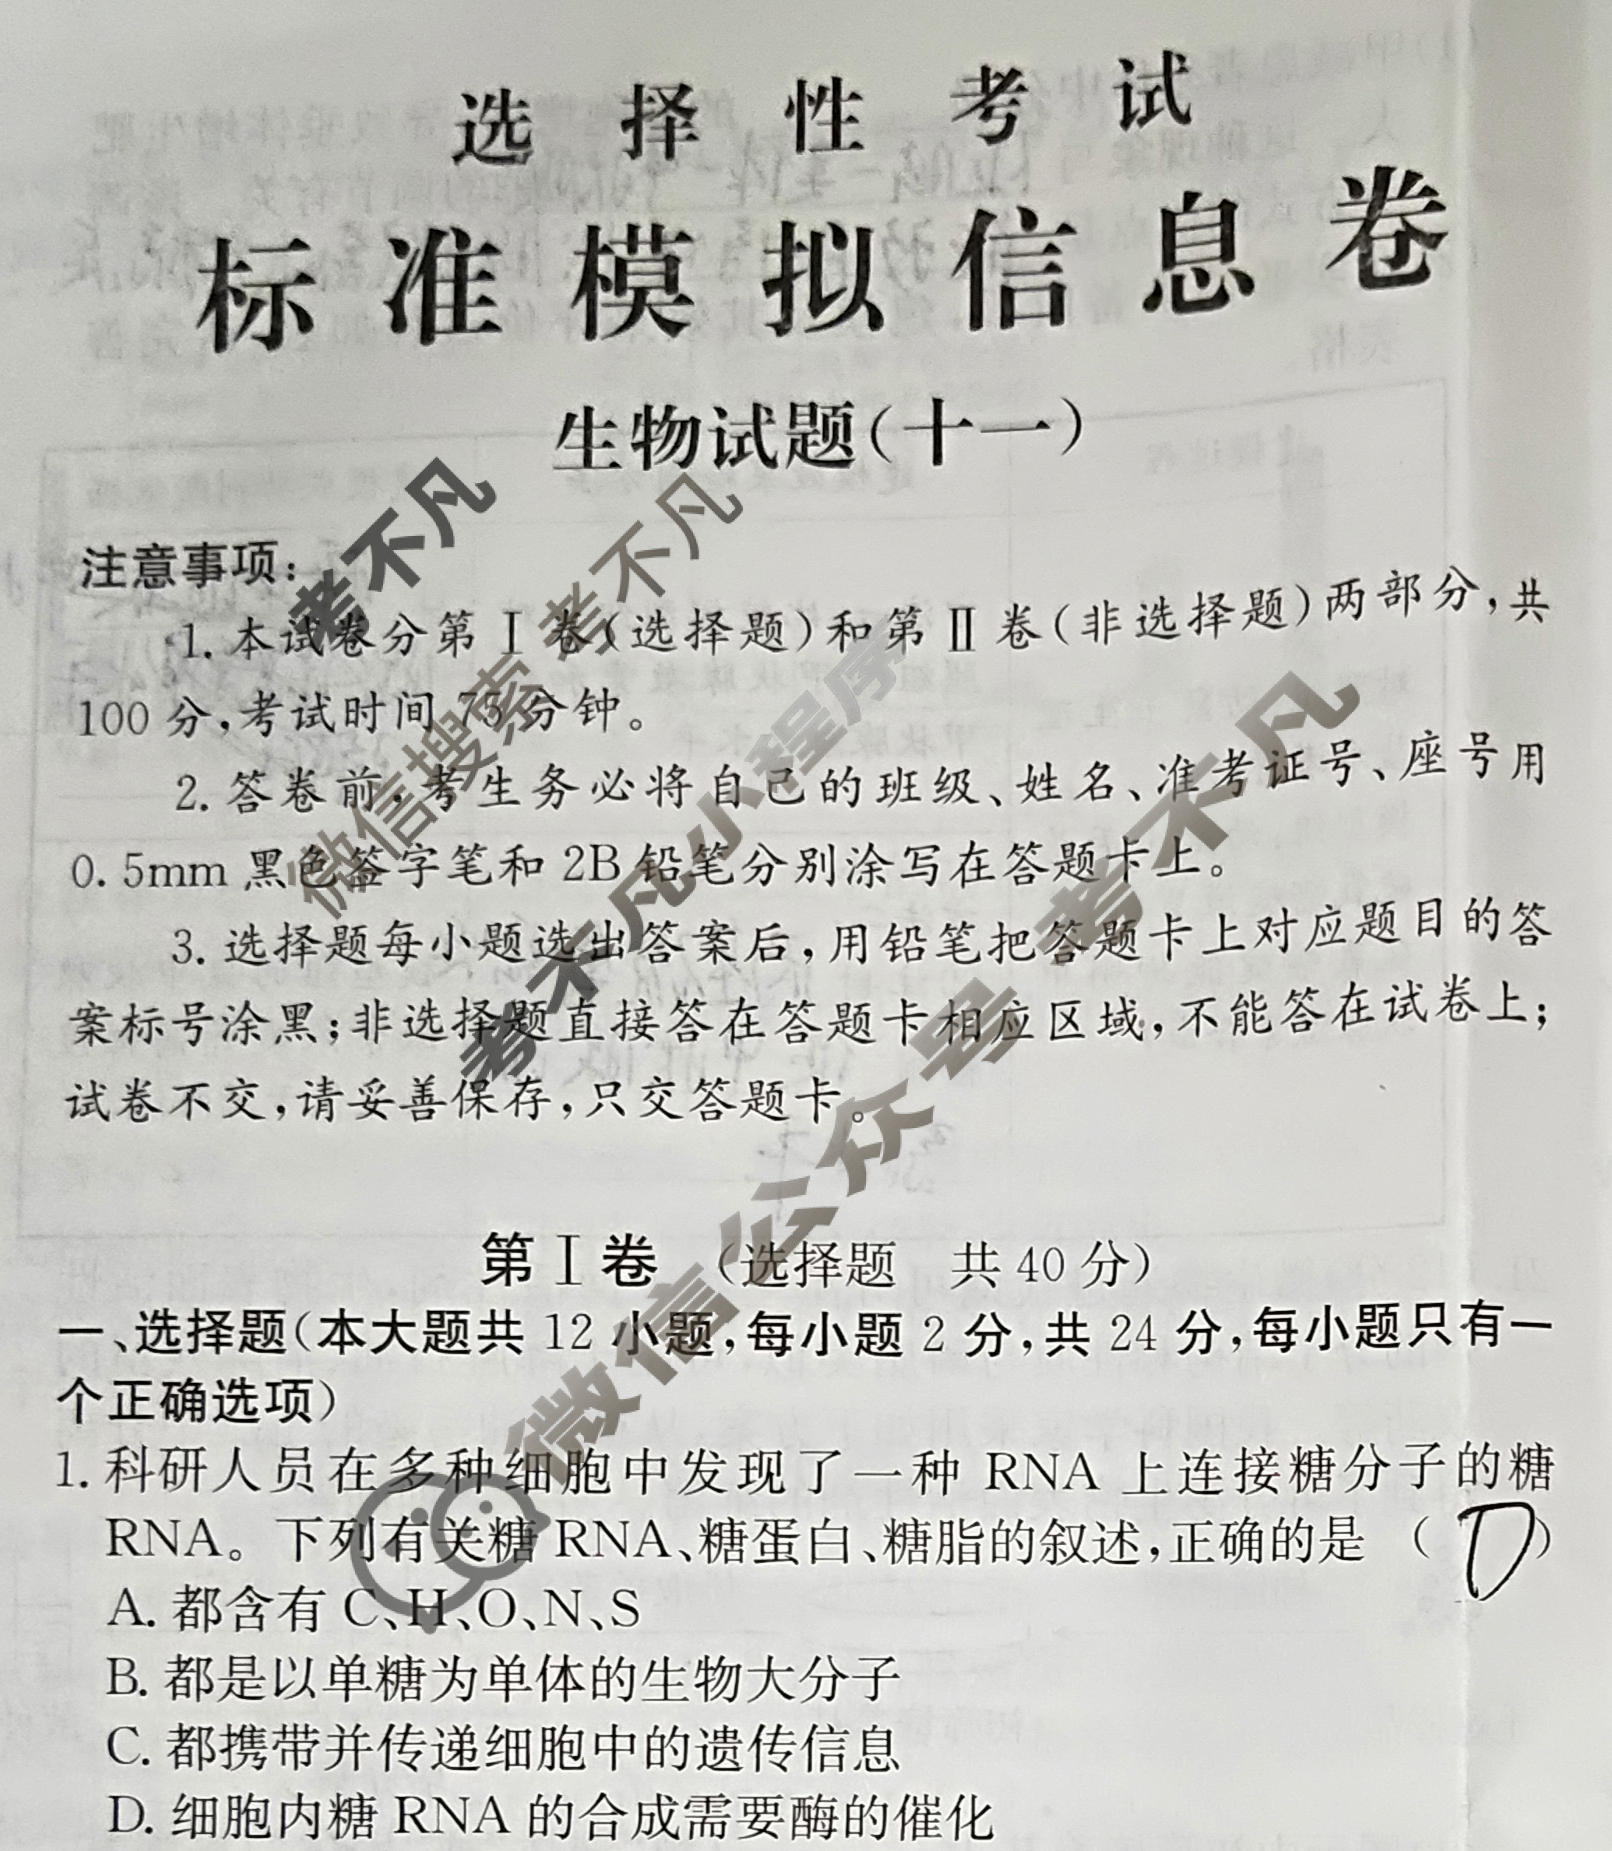 选择性考试
标准模拟信息卷
生物试题(十一)
注意事项:
1. 本试卷分第Ⅰ卷(选择题)和第Ⅱ卷(非选择题)两部分,共
100 分,考试时间 75 分钟。
2. 答卷前,考生务必将自己的班级、姓名、准考证号、座号用
0.5mm 黑色签字笔和 2B 铅笔分别涂写在答题卡上。
3. 选择题每小题选出答案后,用铅笔把答题卡上对应题目的答
案标号涂黑;非选择题直接答在答题卡相应区域,不能答在试卷上;
试卷不交,请妥善保存,只交答题卡。
第Ⅰ卷 (选择题 共 40 分)
一、选择题(本大题共 12 小题,每小题 2 分,共 24 分,每小题只有一
个正确选项)
1. 科研人员在多种细胞中发现了一种 RNA 上连接糖分子的糖
RNA。下列有关糖 RNA、糖蛋白、糖脂的叙述,正确的是 ( D )
A. 都含有 C、H、O、N、S
B. 都是以单糖为单体的生物大分子
C. 都携带并传递细胞中的遗传信息
D. 细胞内糖 RNA 的合成需要酶的催化
考不凡
微信搜索 考不凡
考不凡小程序
微信公众号 考不凡